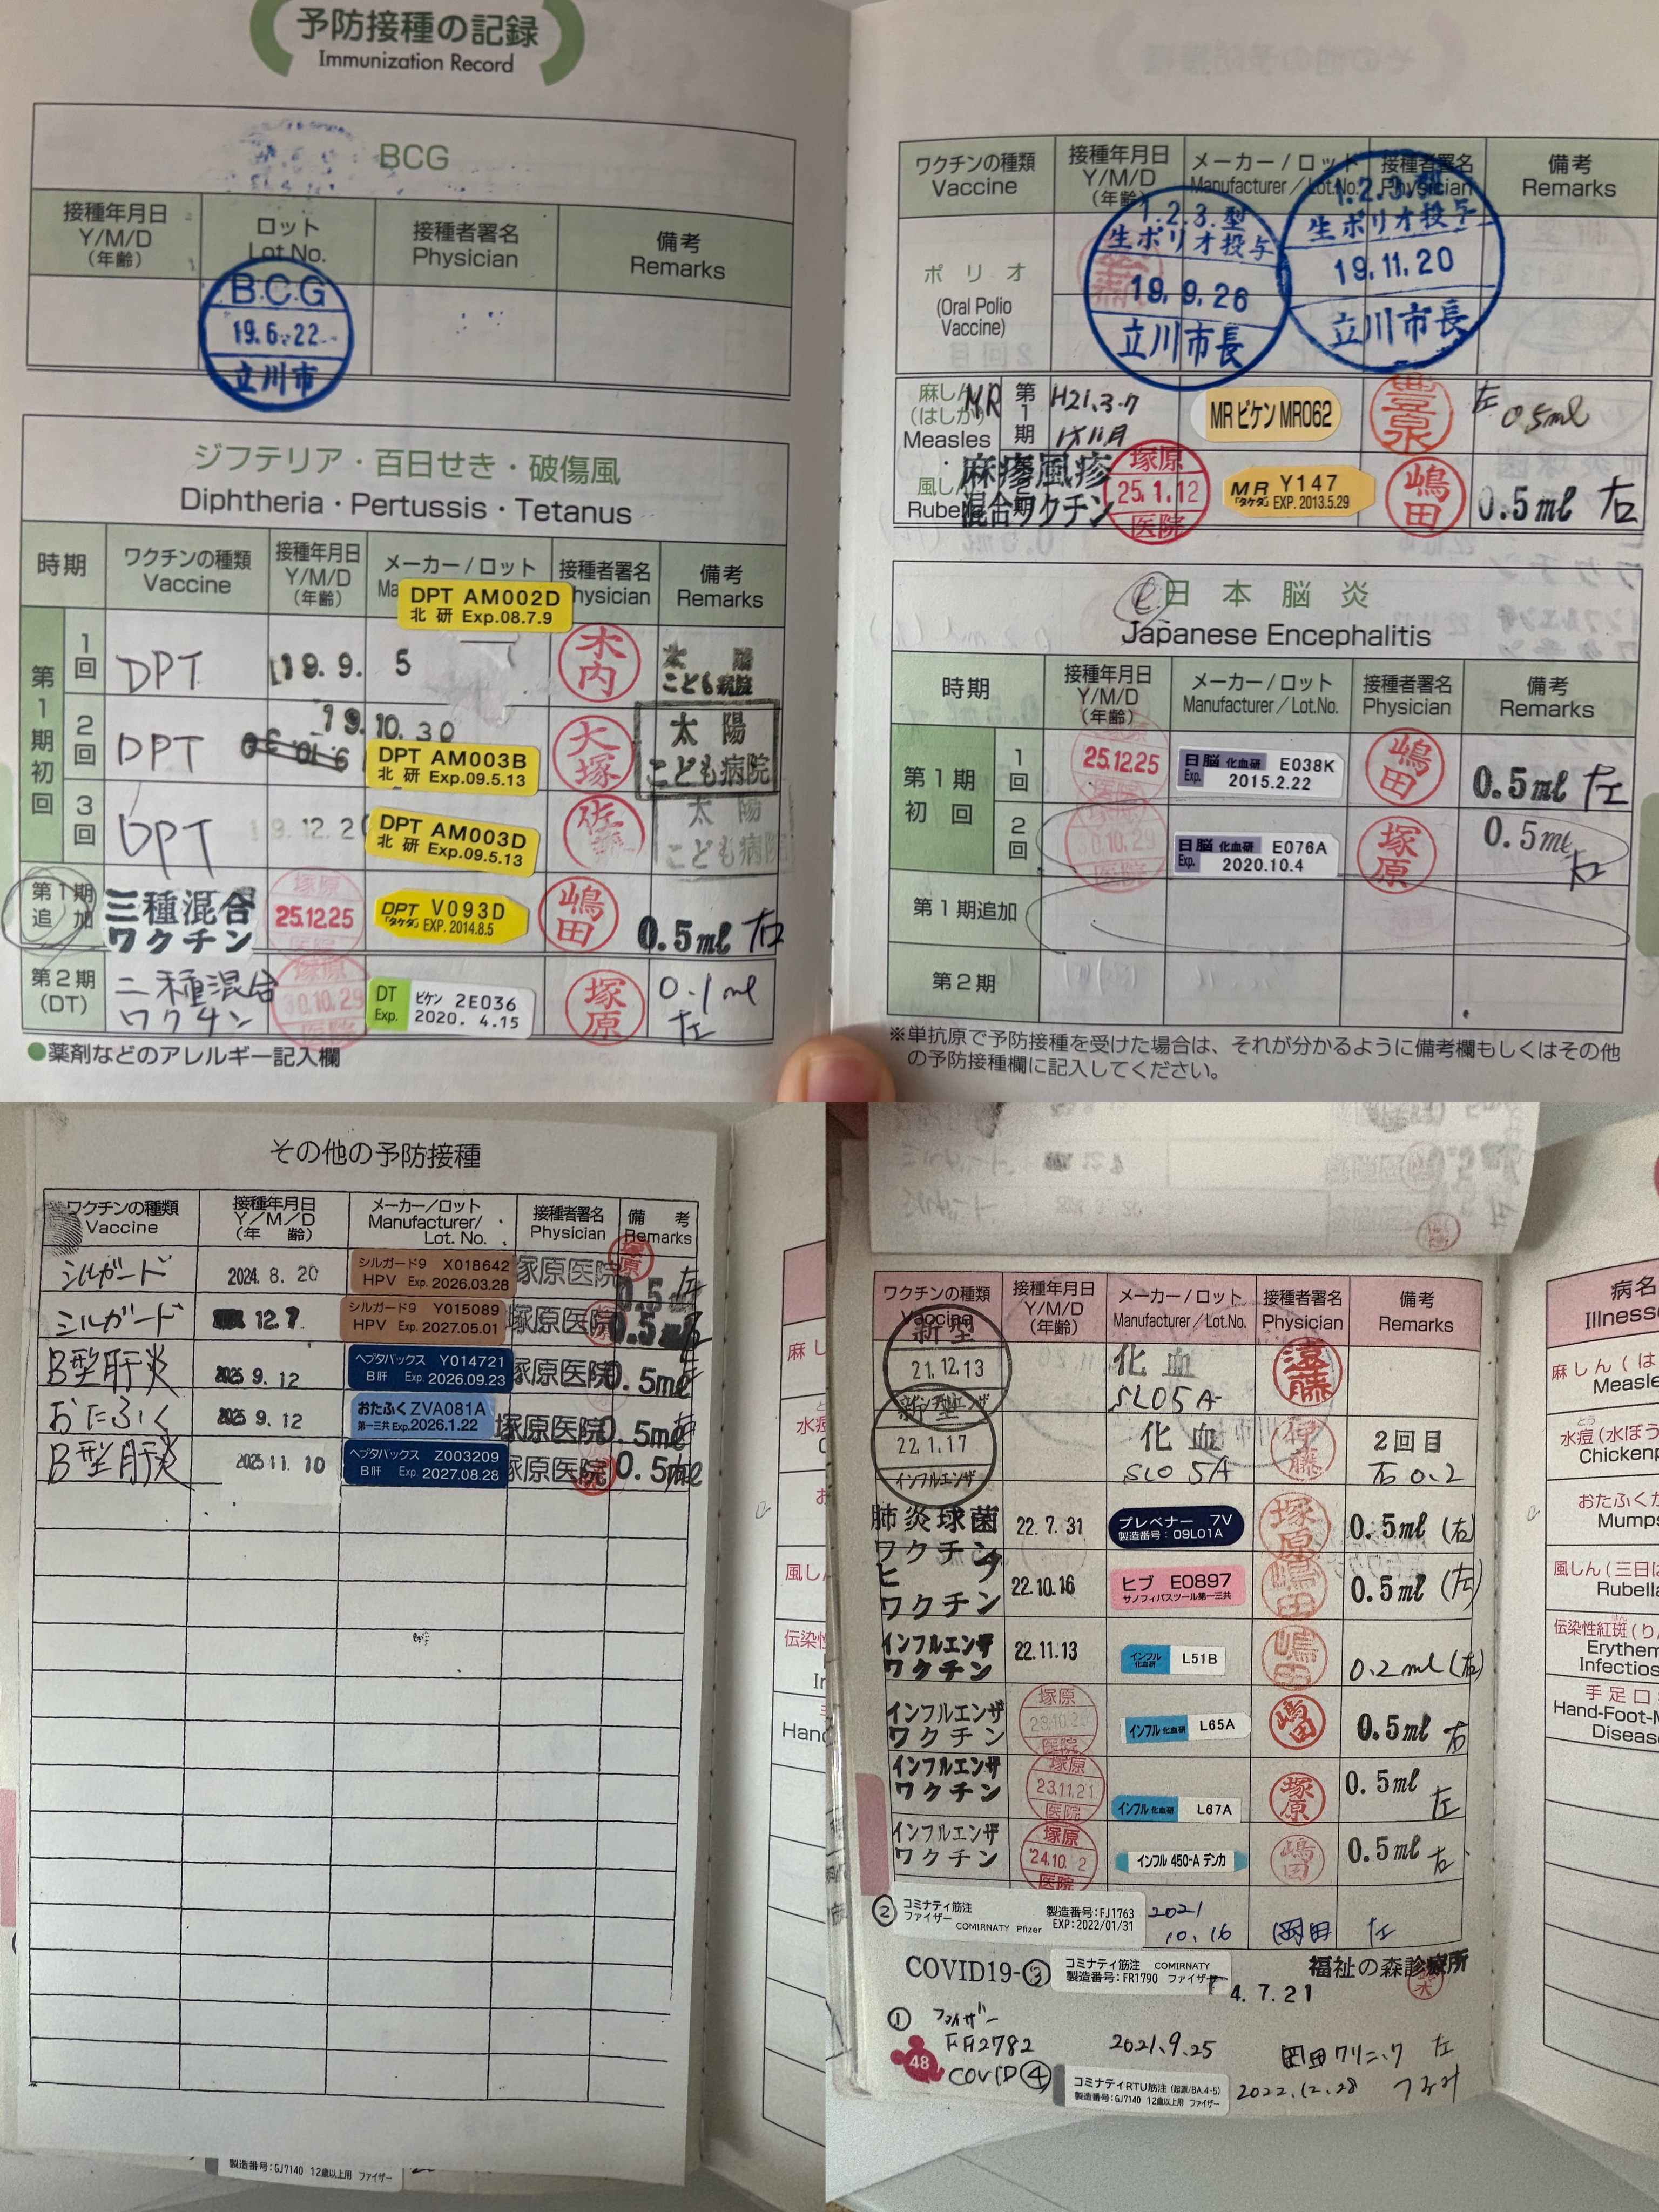 予防接種の記録
Immunization Record
BCG
接種年月日 Y/M/D (年齢) ロット Lot.No. 接種者署名 Physician 備考 Remarks
B.C.G
19.6.22
立川市
ジフテリア・百日せき・破傷風
Diphtheria・Pertussis・Tetanus
時期 ワクチンの種類 Vaccine 接種年月日 Y/M/D (年齢) メーカー/ロット 接種者署名 hysician 備考 Remarks
DPT AM002D
北研 Exp.08.7.9
第1期初回
1回 DPT 19.9.5 木内 太陽こども病院
2回 DPT 19.10.30 大塚 太陽こども病院
DPT AM003B
北研 Exp.09.5.13
3回 DPT 19.12.2 太陽こども病院
DPT AM003D
北研 Exp.09.5.13
第1期追加 三種混合ワクチン 塚原 25.12.25 医院 嶋田 0.5ml 右
DPT V093D
「タケダ」EXP. 2014.8.5
第2期(DT) 二種混合ワクチン 塚原 30.10.29 医院 塚原 0.1ml 左
DT ビケン 2E036
Exp. 2020. 4.15
●薬剤などのアレルギー記入欄
ワクチンの種類 Vaccine 接種年月日 Y/M/D (年齢) メーカー/ロット Manufacturer/Lot.No. 接種者署名 Physician 備考 Remarks
ポリオ
(Oral Polio Vaccine)
1.2.3.型
生ポリオ投与
19.9.26
立川市長
1.2.3.型
生ポリオ投与
19.11.20
立川市長
麻しん(はしか) Measles
MR 第1期 H21.3.7 1才11月 MR ビケン MR062 豊泉 左 0.5ml
風しん Rubel
麻疹風疹混合ワクチン 期 塚原 25.1.12 医院 嶋田 0.5ml 右
MR Y147
「タケダ」EXP. 2013.5.29
日本脳炎
Japanese Encephalitis
時期 接種年月日 Y/M/D (年齢) メーカー/ロット Manufacturer/Lot.No. 接種者署名 Physician 備考 Remarks
第1期初回
1回 25.12.25 日脳 化血研 E038K Exp. 2015.2.22 嶋田 0.5ml 左
2回 30.10.29 日脳 化血研 E076A Exp. 2020.10.4 塚原 0.5ml 右
第1期追加
第2期
※単抗原で予防接種を受けた場合は、それが分かるように備考欄もしくはその他
の予防接種欄に記入してください。
その他の予防接種
ワクチンの種類 Vaccine 接種年月日 Y/M/D (年齢) メーカー/ロット Manufacturer/Lot. No. 接種者署名 Physician 備考 Remarks
シルガード 2024.8.20 シルガード9 X018642 HPV Exp. 2026.03.28 塚原医院 塚原 0.5 左
シルガード 12.7 シルガード9 Y015089 HPV Exp. 2027.05.01 塚原医院 0.5
B型肝炎 2025 9.12 ヘプタバックス Y014721 B肝 Exp. 2026.09.23 塚原医院 0.5ml
おたふく 2025 9.12 おたふく ZVA081A 第一三共 Exp. 2026.1.22 塚原医院 0.5ml
B型肝炎 2025 11.10 ヘプタバックス Z003209 B肝 Exp. 2027.08.28 塚原医院 0.5ml
製造番号:GJ7140 12歳以上用 ファイザー
ワクチンの種類 Vaccine 接種年月日 Y/M/D (年齢) メーカー/ロット Manufacturer/Lot.No. 接種者署名 Physician 備考 Remarks
新型 21.12.13 インフルエンザ 化血 SL05A
新型 22.1.17 インフルエンザ 化血 SL05A 伊藤 2回目 右 0.2
肺炎球菌ワクチン 22.7.31 プレベナー 7V 製造番号:09L01A 塚原 0.5ml (右)
ヒブワクチン 22.10.16 ヒブ E0897 サノフィパスツール第一三共 嶋田 0.5ml (右)
インフルエンザワクチン 22.11.13 インフル 化血研 L51B 嶋田 0.2ml (左)
インフルエンザワクチン 塚原 医院 インフル 化血研 L65A 嶋田 0.5ml 右
インフルエンザワクチン 塚原 23.11.21 医院 インフル 化血研 L67A 塚原 0.5ml 左
インフルエンザワクチン 塚原 24.10.2 医院 インフル 450-A デンカ 嶋田 0.5ml 右
② コミナティ筋注 ファイザー COMIRNATY Pfizer 製造番号:FJ1763 EXP:2022/01/31 2021 10.16 岡田 左
COVID19-③ コミナティ筋注 COMIRNATY 製造番号:FR1790 ファイザー 4.7.21 福祉の森診療所
① ファイザー
FA2782 2021.9.25 岡田クリニック 左
48
COVID④ コミナティRTU筋注 (起源/BA.4-5) 製造番号:GJ7140 12歳以上用 ファイザー 2022.12.28
病名
Illness
麻しん(は
Measle
水痘(水ぼう
Chickenp
おたふくか
Mumps
風しん(三日は
Rubella
伝染性紅斑(り
Erythem
Infectios
手足口
Hand-Foot-M
Diseas